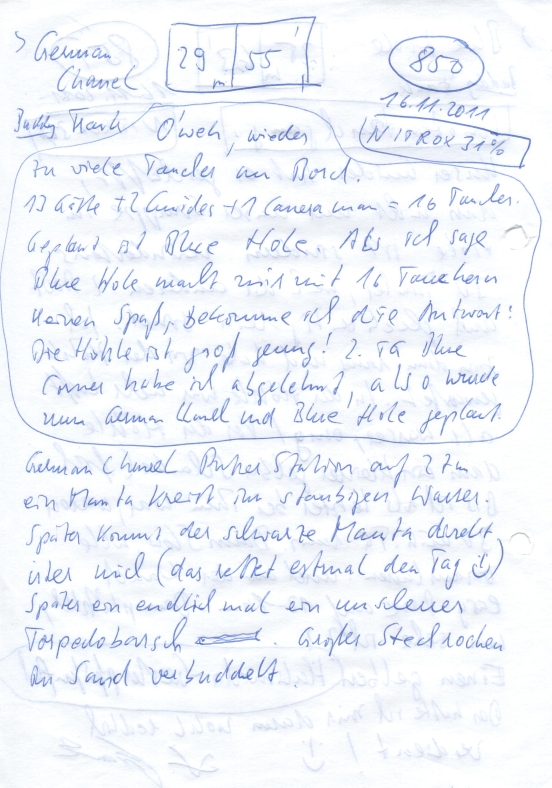 German
Chanel
29 m 55'
850
16.11.2011
NITROX 31%
Buddy Frank O'weh, wieder
zu viele Taucher an Bord.
13 Gäste + 2 Guides + 1 Cameraman = 16 Taucher.
Geplant ist Blue Hole Als ich sage
Blue Hole macht mir mit 16 Tauchern
keinen Spaß, bekomme ich die Antwort:
Die Höhle ist groß genug! 2. TG Blue
Corner habe ich abgelehnt, also wurde
nun German Kanel und Blue Hole geplant.
German Chanel Putzer Station auf 27m
ein Manta kreist im staubigen Wasser.
Später kommt der schwarze Manta direkt
über mich (das rettet erstmal den Tag ☺)
Später ein endlich mal ein
Torpedobarsch. Großer Stechrochen
im Sand verbuddelt.